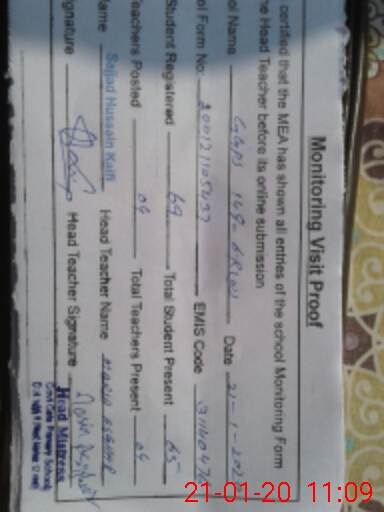 Monitoring Visit Proof
certified that the MEA has shown all entries of the school Monitoring Form
Head Teacher before its online submission
Name GGPS 149-6R(W) Date 21-1-202
Form No. EMIS Code
Student Registered 69 Total Student Present 65
Teachers Posted 04 Total Teachers Present 04
Name Sajjad Hussain Kaifi Head Teacher Name
Signature Head Teacher Signature
Head Mistress
Govt Girls Primary School
21-01-20 11:09